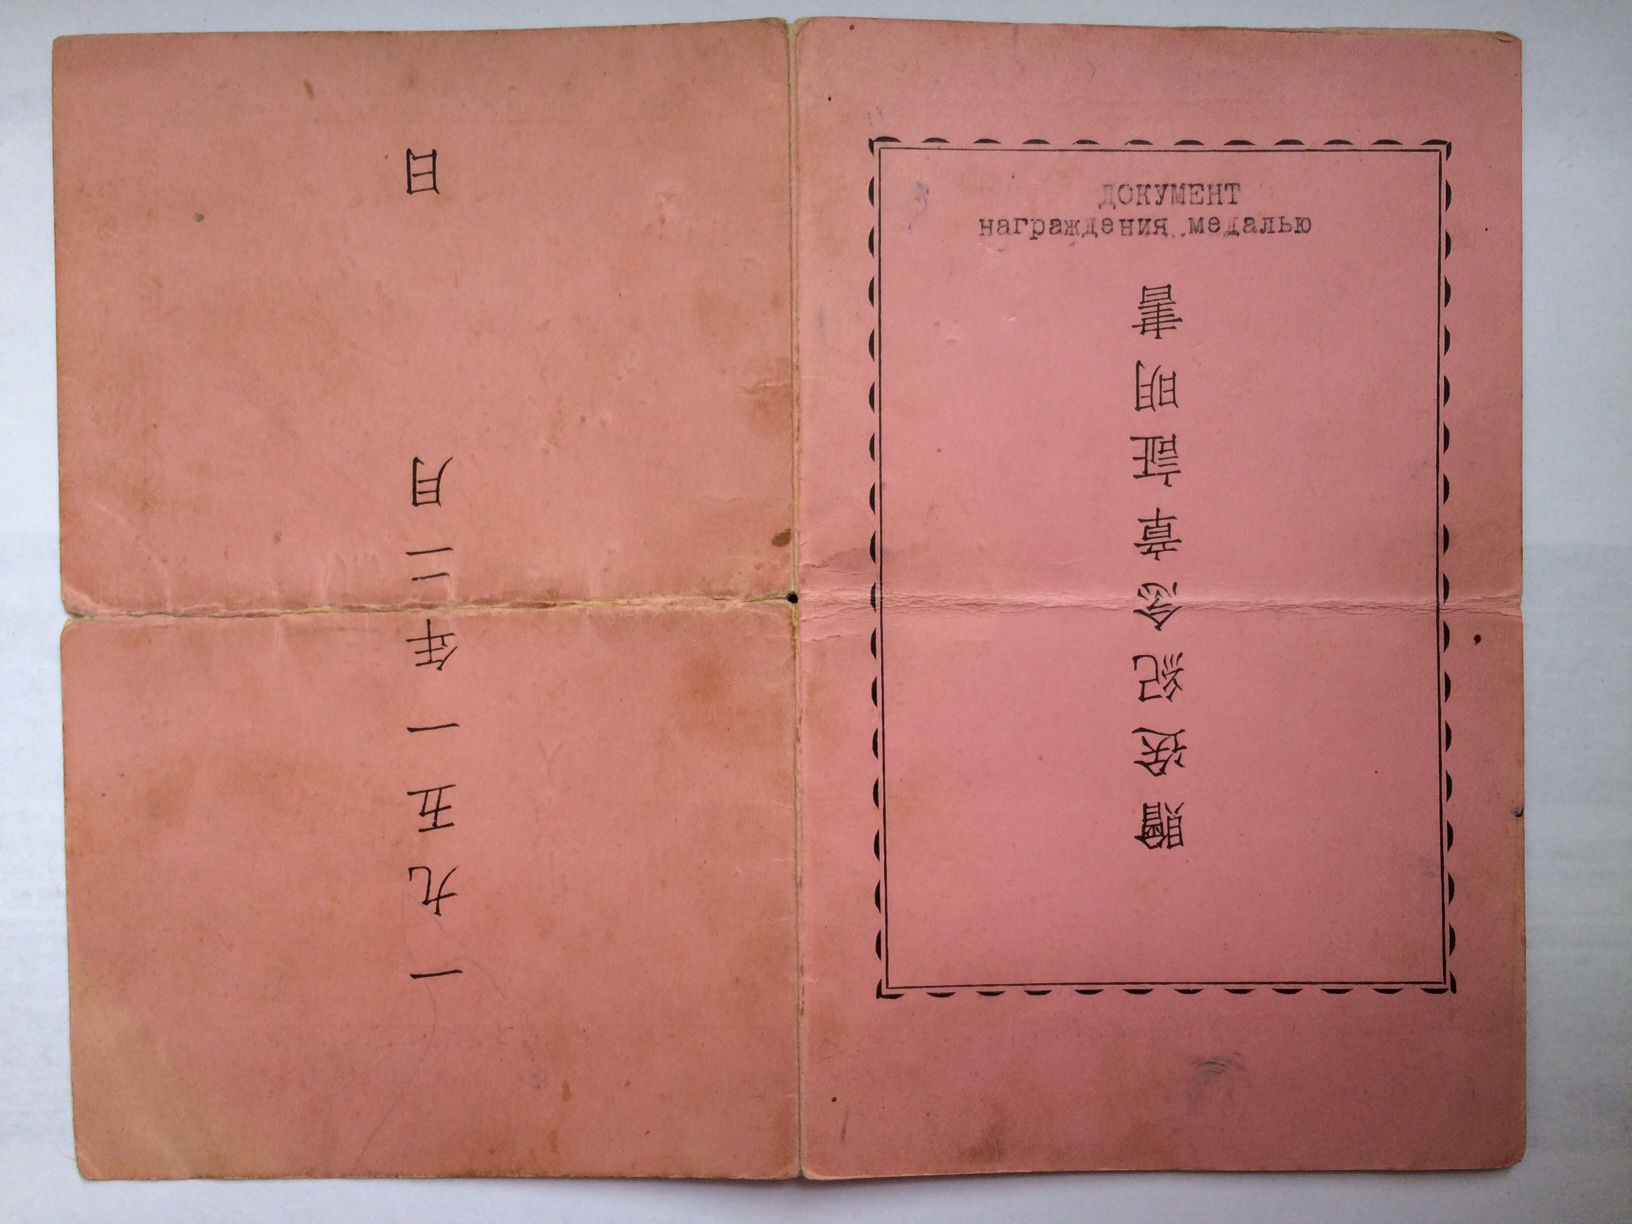 ДОКУМЕНТ
награждения медалью
贈送紀念章証明書
一九五一年二月 日